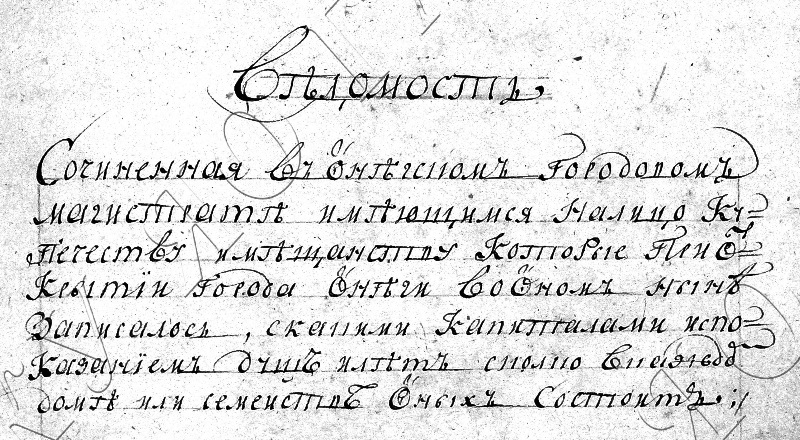 Вѣдомость.
Сочиненная въ Онѣгскомъ Городовомъ
магистратѣ имѣющимся налицо Ку=
печеству имѣщанству Которые При О=
Крытии Города Онѣги во Оном нынѣ
Записалось, скакими Капиталами испо=
казанїемъ душъ илѣтъ сполио
домѣ или семеиствѣ Оныхъ Состоитъ: